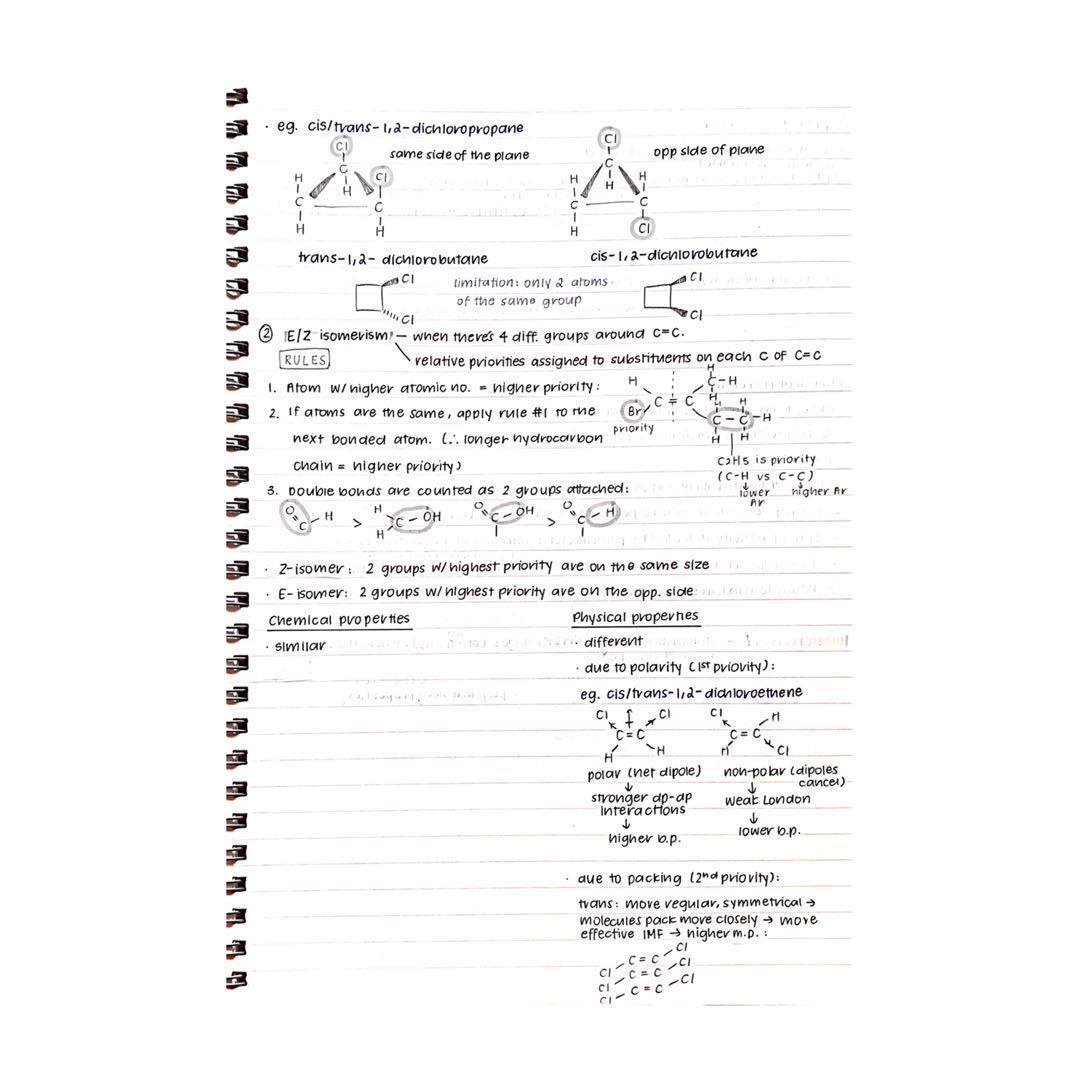 · eg. cis/trans-1,2-dichloropropane
same side of the plane
opp side of plane
Cl
C
H
Cl
H
C
H
C
H
Cl
C
H
H
C
H
H
C
Cl
trans-1,2- dichlorobutane
cis-1,2-dichlorobutane
Cl
Cl
limitation: only 2 atoms
of the same group
Cl
Cl
② E/Z isomerism — when there's 4 diff. groups around C=C.
RULES
relative priorities assigned to substituents on each C of C=C
1. Atom w/ higher atomic no. = higher priority:
2. If atoms are the same, apply rule #1 to the
next bonded atom. (∴ longer hydrocarbon
chain = higher priority)
H
Br
C = C
H
C-H
H
H H
C-C-H
H H
priority
C2H5 is priority
(C-H vs C-C)
lower Ar
higher Ar
3. Double bonds are counted as 2 groups attached:
O=C-H > H H C-OH
O=C-OH > O=C-H
· Z-isomer: 2 groups w/ highest priority are on the same size
· E-isomer: 2 groups w/ highest priority are on the opp. side
Chemical properties
· similar
Physical properties
· different
· due to polarity (1st priority):
eg. cis/trans-1,2-dichloroethene
Cl Cl
C=C
H H
Cl H
C=C
H Cl
polar (net dipole)
↓
stronger dp-dp
interactions
↓
higher b.p.
non-polar (dipoles
cancel)
↓
weak London
↓
lower b.p.
· due to packing (2nd priority):
trans: more regular, symmetrical →
molecules pack more closely → more
effective IMF → higher m.p. :
Cl-C=C-Cl
Cl-C=C-Cl
Cl-C=C-Cl